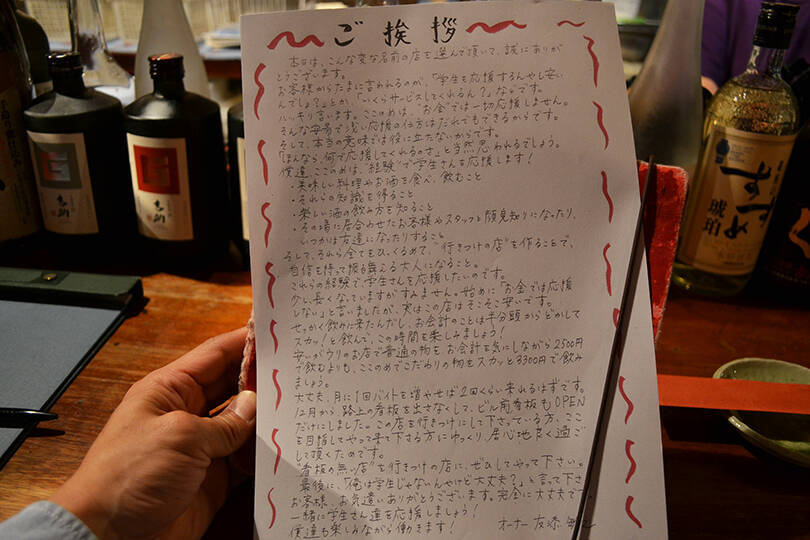 ご挨拶
本日は、こんな変な名前の店を選んで頂いて、誠にありが
とうございます。
お客様からたまに言われるのが、「学生を応援するんやし安い
んでしょ?」とか、「いくらサービスしてくれるん?」などです。
ハッキリ言います。ここのめは、"お金"では一切応援しません。
そんな安易で浅い応援の仕方はだれでもできるからです。
そして、本当の意味では役に立たないからです。
「ほんなら、何で応援してくれるのさ」と当然思われるでしょう。
僕達、ここのめは、"経験"で学生さんを応援します!
・美味しい料理やお酒を食べ、飲むこと
・それらの知識を得ること
・楽しい酒の飲み方を知ること
・その場に居合わせたお客様やスタッフと顔見知りになったり、
いつかは友達になったりすること
そして、それら全てをひっくるめて、"行きつけの店"を作ることで、
自信を持って振る舞える大人になること。
これらの経験で、学生さんを応援したいのです。
少し長くなっていますがすみません。始めに「お金では応援
しない」と言いましたが、実はこの店はそこそこ安いです。
せっかく飲みに来たんだし、お会計のことは半分頭からどかして
スカッ!と飲んで、この時間を楽しみましょう!
安いがウリのお店で普通の物を、お会計を気にしながら2500円
で飲むよりも、ここのめでこだわりの物をスカッと3300円で飲み
ましょう。
大丈夫、月に1回バイトを増やせば2回くらい来れるはずです。
12月から路上の看板を出さなくして、ビル前看板もOPEN
だけにしました。この店を行きつけにして下さっている方、ここ
を目指してやって来て下さる方にゆっくり、居心地良く過ご
して頂くためです。
"看板の無い店"を行きつけの店に、ぜひしてやって下さい。
最後に、「俺は学生じゃないんやけど大丈夫?」と言って下さ
お客様、お気遣いありがとうございます。完全に大丈夫です
一緒に学生さん達を応援しましょう!
僕達も楽しみながら働きます!
オーナー 友添
すずめ
琥珀